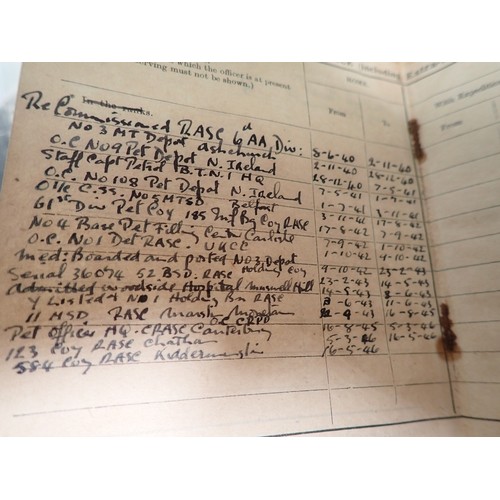 which the officer is at present
erving must not be shown.)
(including
From
To
With Expedit
From
In the ranks.
Re Commissioned RASC 6 AA Div:
No 3 MT Depot Ashchurch 8-6-40 2-11-40
O.C No 9 Pet Depot N. Ireland 2-11-40
Staff Capt Petrol B.T.N.I HQ
O.C No 108 Pet Depot N. Ireland 7-5-41
O i/c C.SS. No 5 MTSD Belfast 1-7-41
61st Div Pet Coy 185 Inf Bg Coy RASC 3-11-41
No 4 Base Pet Filling Centre Carlisle 17-8-42 7-9-42
O.C. No 1 Det RASC. UKCC 7-9-42 1-10-42
Med: Boarded and posted No 3 Depot 1-10-42 4-10-42
Serial 36074 52 BSD. RASC Holding Coy 4-10-42 23-2-43
Admitted Woodside Hospital Muswell Hill 23-2-43 14-5-43
Y Listed & No 1 Holding Bn RASC 14-5-43 8-6-43
11 MSD RASC
OC CRPD
Pet Officer HQ. CRASC Canterbury 16-8-45 5-3-46
123 Coy RASC Chatham 5-3-46 16-5-46
584 Coy RASC Kidderminster 16-5-46